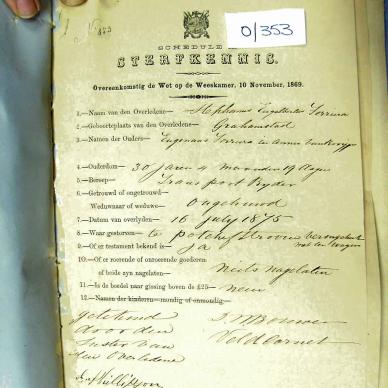 0/353
SCHEDULE
STERFKENNIS.
Overeenkomstig de Wet op de Weeskamer, 10 November, 1869.
1.—Naam van den Overledene— Stephanus
2.—Geboorteplaats van den Overledene— Grahamstad
3.—Namen der Ouders— en
4.—Ouderdom— 30 jaren 4 maanden 19 dagen
5.—Beroep— Transport Ryder
6.—Getrouwd of ongetrouwd—
Weduwnaar of weduwe— Ongehuwd
7.—Datum van overlyden— 16 July 1875
8.—Waar gestorven— te Potchefstroom
9.—Of er testament bekend is— ja
10.—Of er roerende of onroerende goederen
of beide zyn nagelaten— niets nagelaten
11.—Is de boedel naar gissing boven de £25— neen
12.—Namen der kinderen—mondig of onmondig—
geteekend
door den
Suster van
den Overledene
Veldcornet